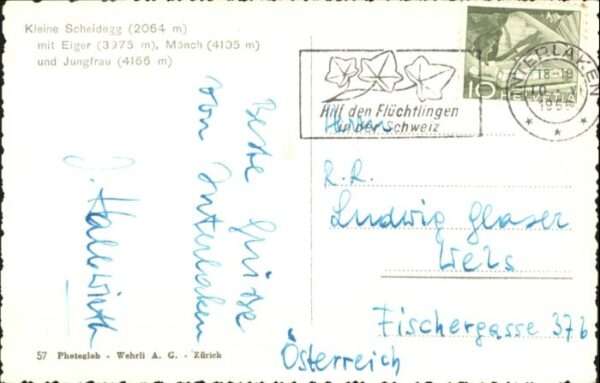 Kleine Scheidegg (2064 m)
mit Eiger (3975 m), Mönch (4105 m)
und Jungfrau (4166 m)
Beste Grüsse
von Interlaken
57 Photoglob - Wehrli A. G. - Zürich
Hilf den Flüchtlingen
in der Schweiz
10
INTERLAKEN
18-19
Herrn
R.R.
Ludwig Glaser
Wels
Fischergasse 37b
Österreich